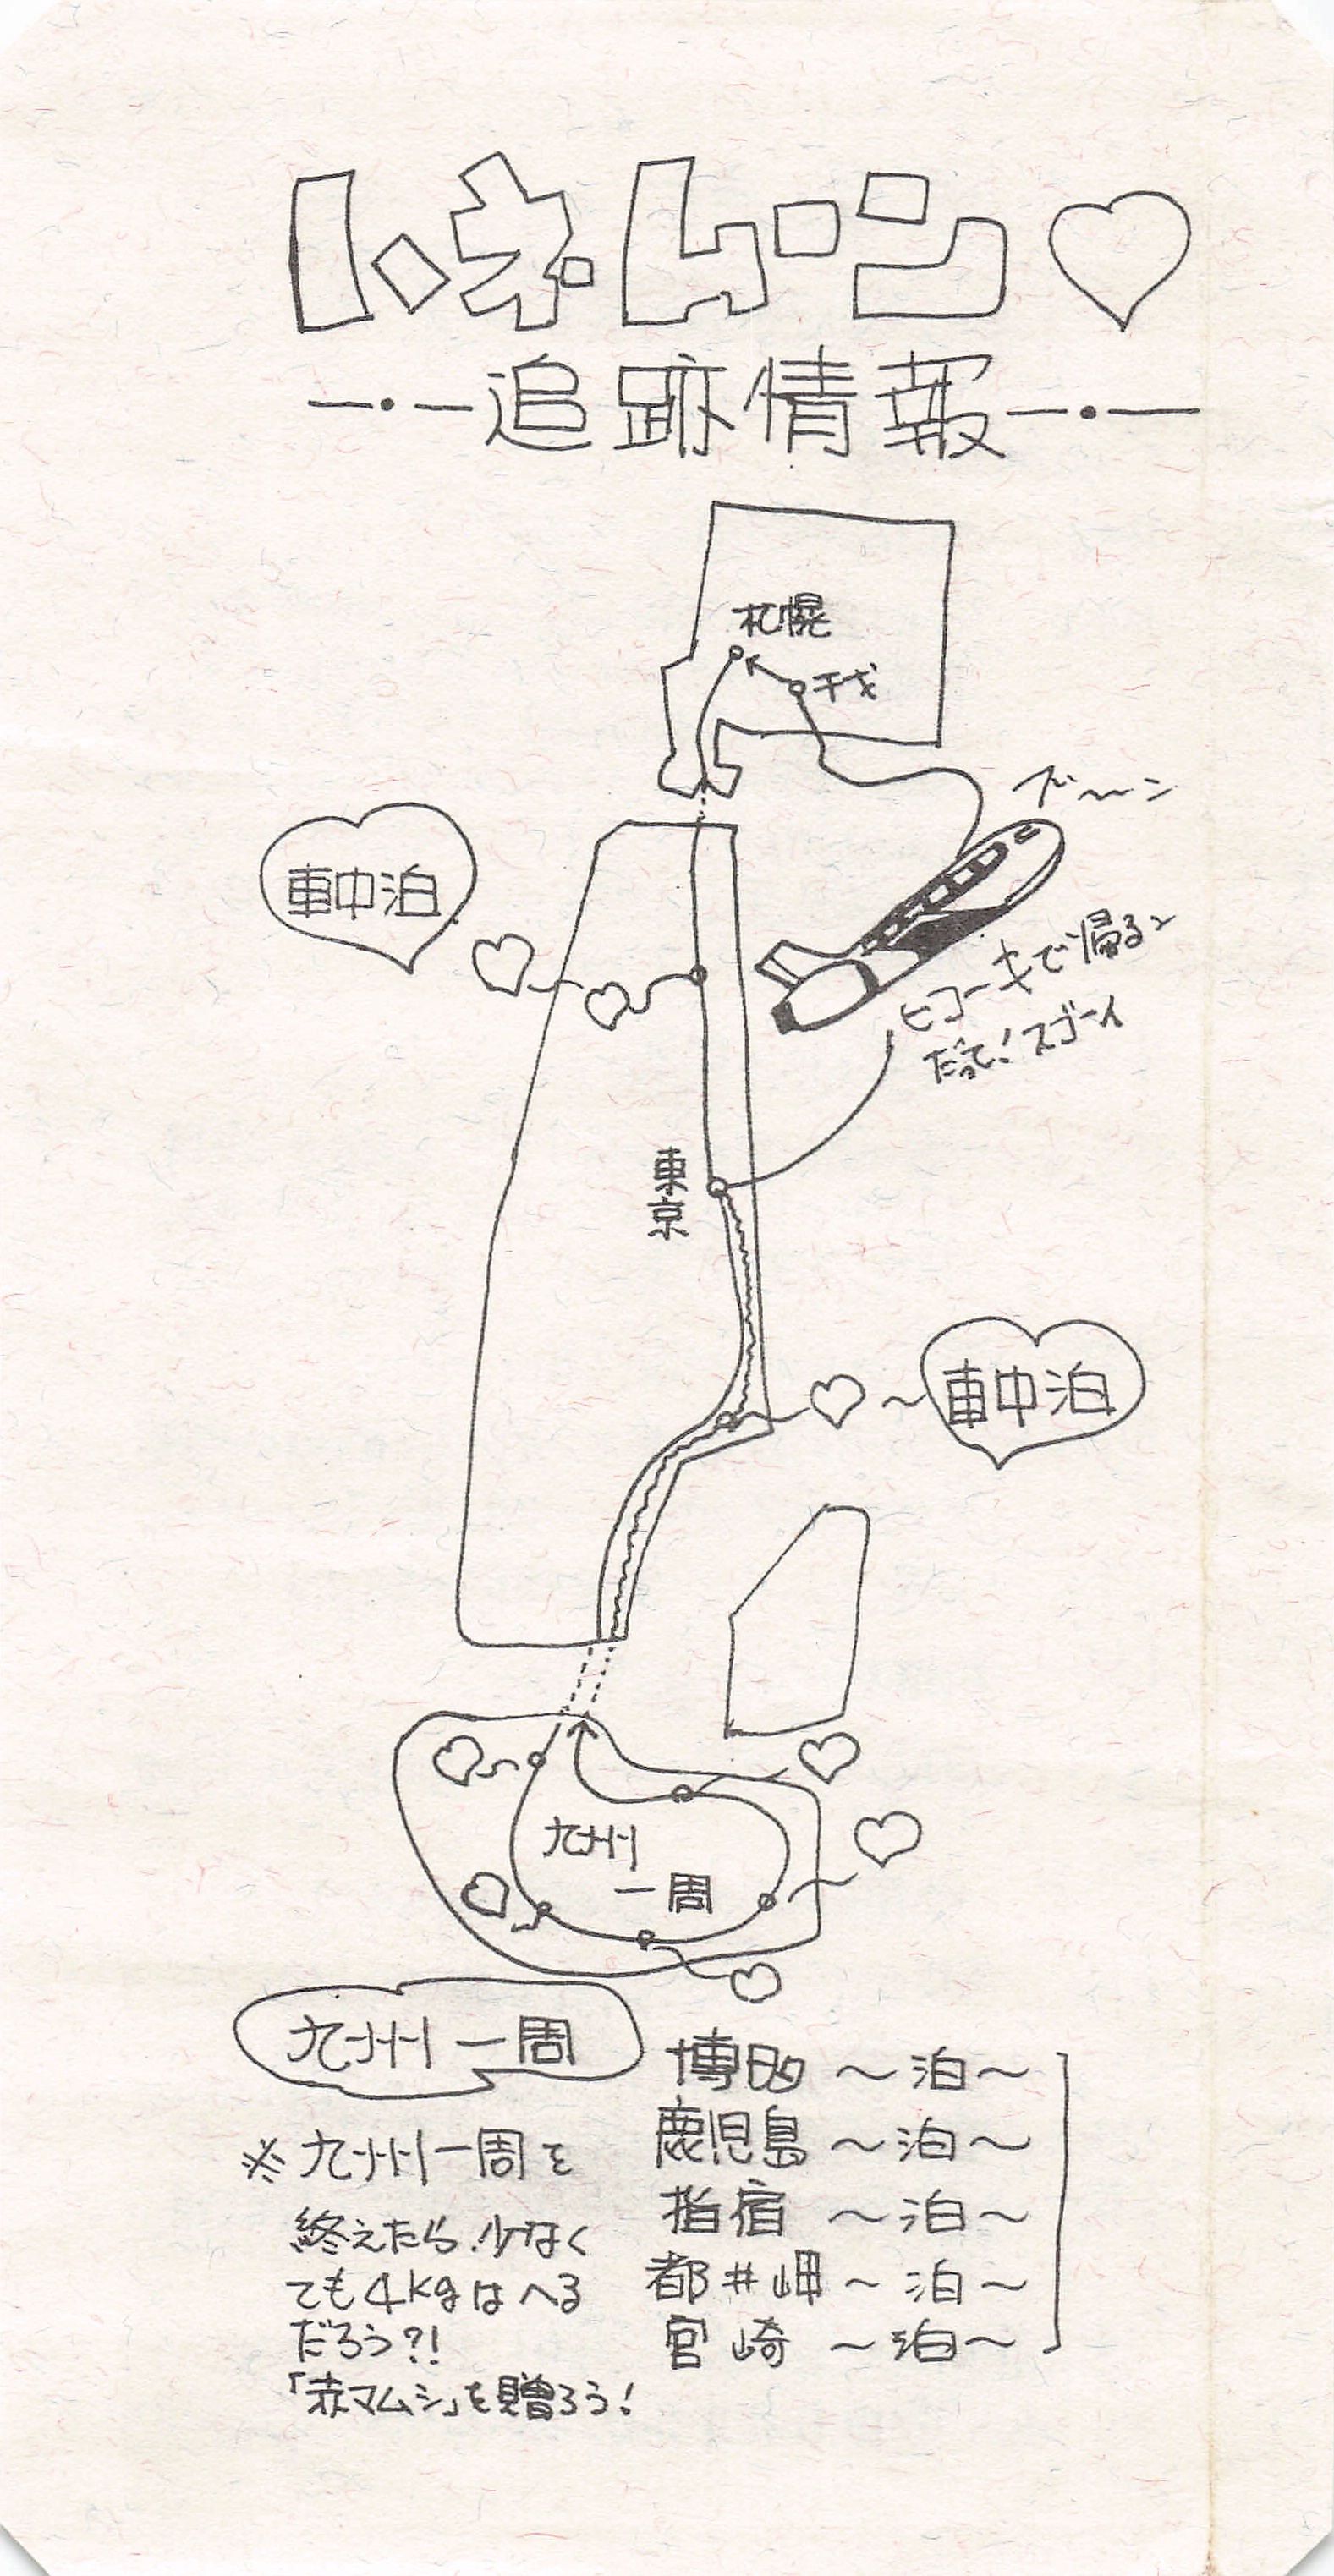 トネムーン♡
追跡情報
札幌
千才
ブ〜ーン
車中泊
ヒコーキで帰るン
だって！スゴーイ
東京
車中泊
九州
一周
九州一周
博多 〜泊〜
鹿児島 〜泊〜
指宿 〜泊〜
都井岬 〜泊〜
宮崎 〜泊〜
※九州一周を
終えたら、少なく
ても4kgはへる
だろう?!
「赤マムシ」を贈ろう！